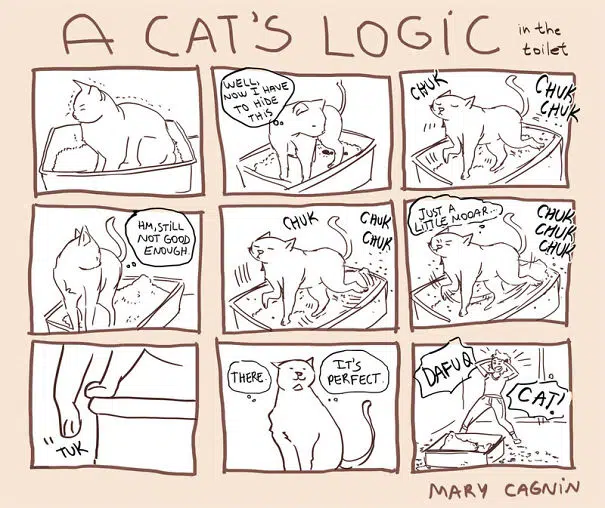 A CAT'S LOGIC
in the
toilet
WELL,
NOW I HAVE
TO HIDE
THIS
CHUK
CHUK
CHUK
HM, STILL
NOT GOOD
ENOUGH.
CHUK
CHUK
CHUK
JUST A
LITTLE MOOAR...
CHUK
CHUK
CHUK
TUK
THERE.
IT'S
PERFECT.
DAFUQ
CAT!
MARY CAGNIN